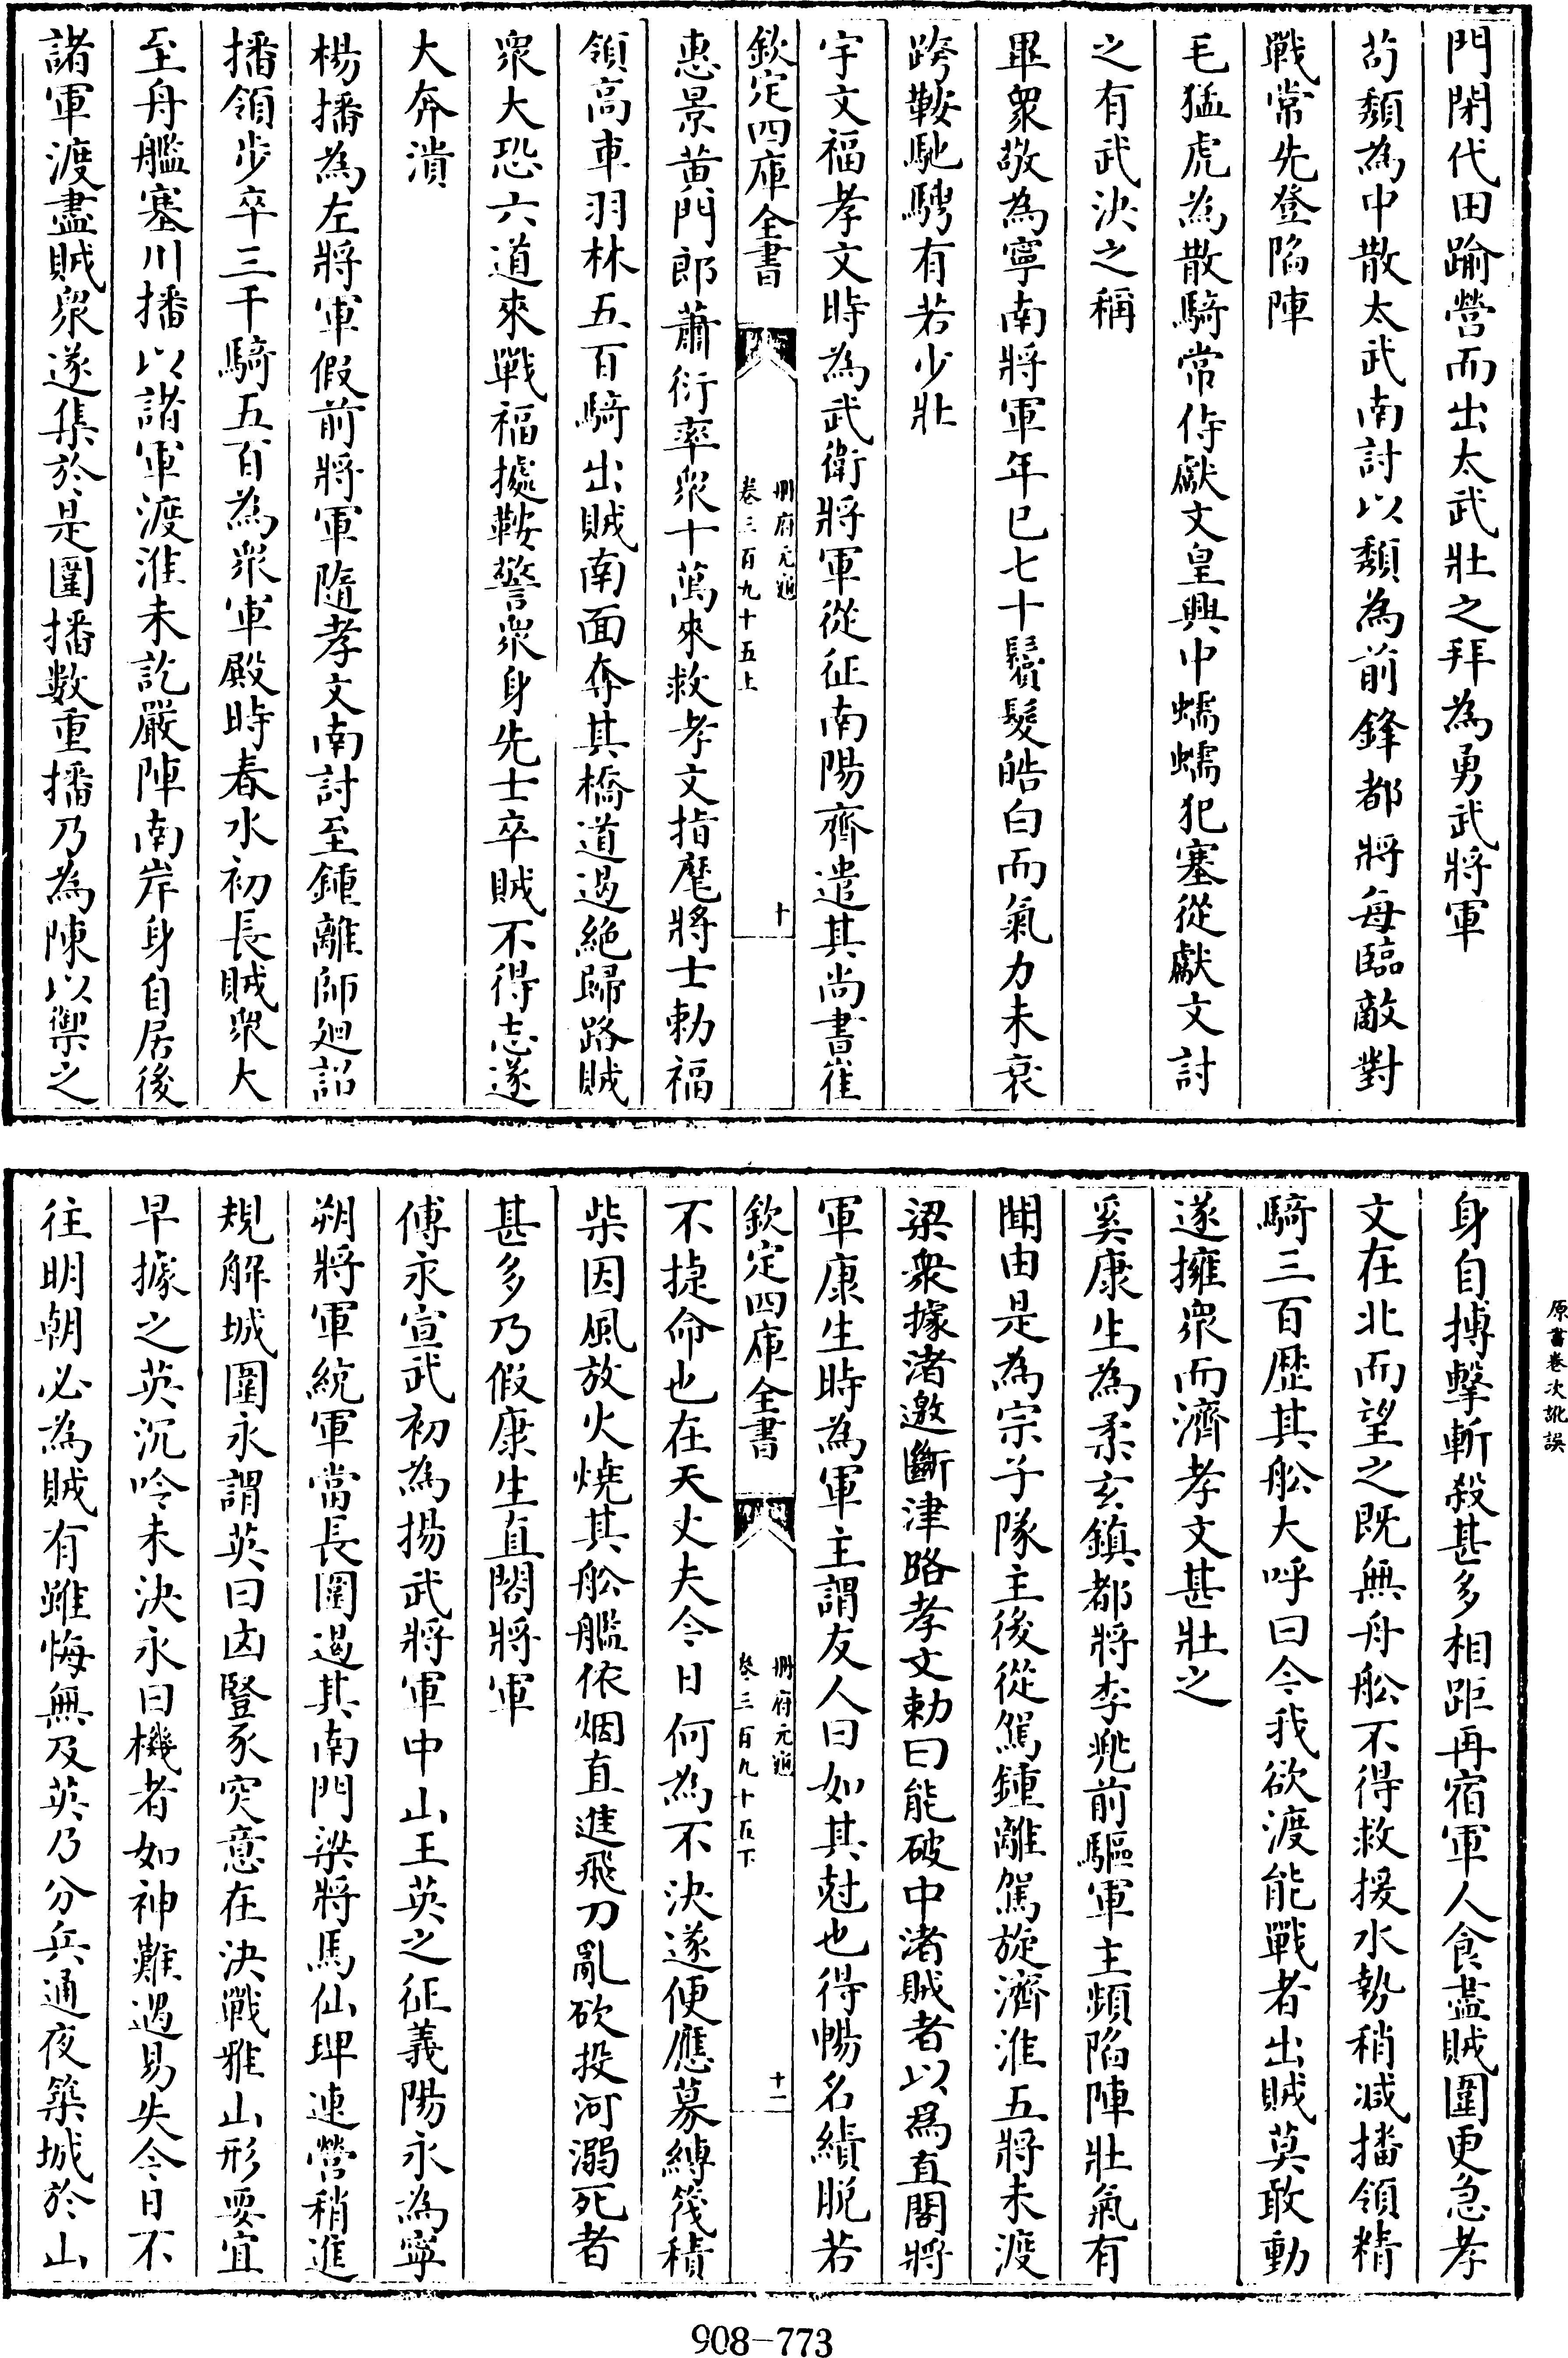 門閉代田踰營而出太武壯之拜為勇武將軍
茍頹為中散太武南討以頹為前鋒都將每臨敵對
戰常先登陷陣
毛猛虎為散騎常侍獻文皇興中蠕蠕犯塞從獻文討
之有武決之稱
畢衆敬為寧南將軍年已七十鬢髮皓白而氣力未衰
跨鞍馳騁有若少壯
宇文福孝文時為武衛將軍從征南陽齊遣其尚書崔
欽定四庫全書
冊府元龜
卷三百九十五上
十
惠景黄門郎蕭衍率衆十萬來救孝文指麾將士勅福
領高車羽林五百騎出賊南面奪其橋道遏絶歸路賊
衆大恐六道來戰福據鞍警衆身先士卒賊不得志遂
大奔潰
楊播為左將軍假前將軍隨孝文南討至鍾離師廻詔
播領步卒三千騎五百為衆軍殿時春水初長賊衆大
至舟艦塞川播以諸軍渡淮未訖嚴陣南岸身自居後
諸軍渡盡賊衆遂集於是圍播數重播乃為陳以禦之
原書卷次訛誤
身自搏擊斬殺甚多相距再宿軍人食盡賊圍更急孝
文在北而望之既無舟舩不得救援水勢稍減播領精
騎三百歷其舩大呼曰今我欲渡能戰者出賊莫敢動
遂擁衆而濟孝文甚壯之
奚康生為柔玄鎮都將李兆前驅軍主頻陷陣壯氣有
聞由是為宗子隊主後從駕鍾離駕旋濟淮五將未渡
梁衆據渚邀斷津路孝文勅曰能破中渚賊者以為直閣將
軍康生時為軍主謂友人曰如其尅也得暢名績脱若
欽定四庫全書
冊府元龜
卷三百九十五下
十一
不捷命也在天丈夫今日何為不決遂便應募縛筏積
柴因風放火燒其舩艦依烟直進飛刀亂砍投河溺死者
甚多乃假康生直閤將軍
傅永宣武初為揚武將軍中山王英之征義陽永為寧
朔將軍統軍當長圍遏其南門梁將馬仙琕連營稍進
規解城圍永謂英曰凶豎豕突意在決戰雅山形要宜
早據之英沉吟未決永曰機者如神難遇易失今日不
往明朝必為賊有雖悔無及英乃分兵通夜築城於山
908-773